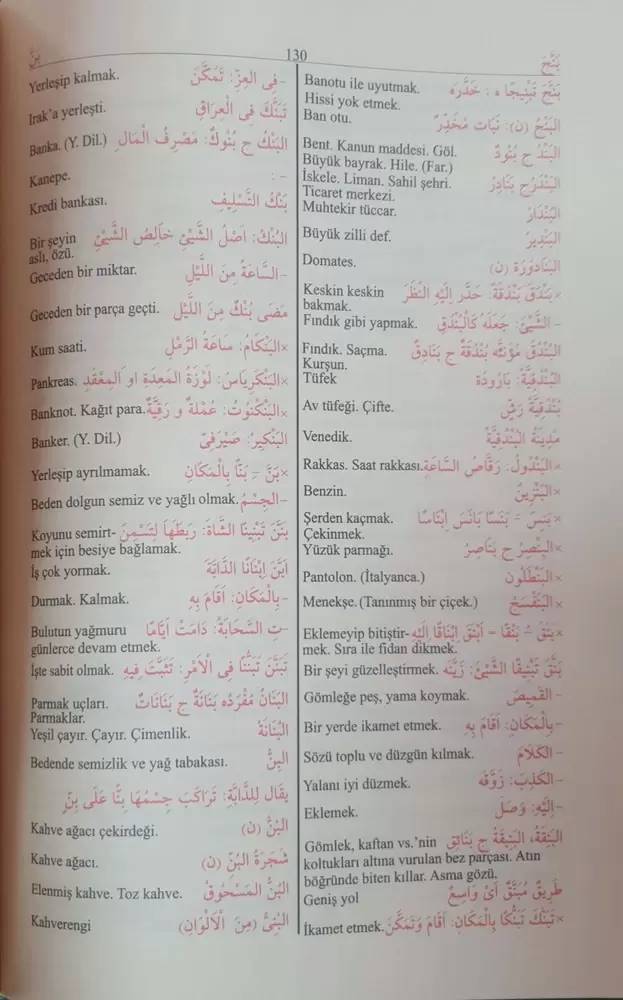 بَنَّجَ
130
بَنَّ
Banotu ile uyutmak. بَنَّجَ تَبْنِيجًا ه : خَدَّرَه
Hissi yok etmek.
Ban otu. البَنْجُ (ن): نَبَات مُخَدِّرٌ
Bent. Kanun maddesi. Göl. البَنْدُ ج بُنُودٌ
Büyük bayrak. Hile. (Far.)
İskele. Liman. Sahil şehri. البَنْدَرُ ج بَنَادِرُ
Ticaret merkezi.
Muhtekir tüccar. البَنْدَارُ
Büyük zilli def. البَنْدِيرُ
Domates. البَنَادُورَة (ن)
Keskin keskin ×بَنْدَقَ بَنْدَقَةً: حَدَّر إِلَيْهِ النَّظَرَ
bakmak.
Fındık gibi yapmak. – الشَّيْئَ: جَعَلَهُ كَالْبُنْدُقِ
Fındık. Saçma. البُنْدُقُ مُؤَنَّثُه بُنْدُقَةٌ ج بَنَادِقُ
Kurşun.
Tüfek البُنْدُقِيَّةُ: بَارُودَة
Av tüfeği. Çifte. بُنْدُقِيَّةُ رَشٍّ
Venedik. مَدِينَةُ البُنْدُقِيَّةُ
Rakkas. Saat rakkası. ×البَنْدُولُ: رَقَّاصُ السَّاعَةِ
Benzin. ×البَنْزِينُ
Şerden kaçmak. ×بَنِسَ – بَنَسًا بَانَسَ اِبْنَاسًا
Çekinmek.
Yüzük parmağı. ×البِنْصِرُ ج بَنَاصِرُ
Pantolon. (İtalyanca.) ×البَنْطَلُون
Menekşe. (Tanınmış bir çiçek.) ×البَنَفْسَجُ
Eklemeyip bitiştir- ×بَنَقَ – بَنْقًا – اَبْنَقَ اِبْنَاقًا إِلَيْهِ
mek. Sıra ile fidan dikmek.
Bir şeyi güzelleştirmek. بَنَّقَ تَبْنِيقًا الشَّيْئَ: زَيَّنَه
Gömleğe peş, yama koymak. – القَمِيصَ
Bir yerde ikamet etmek. –بِالْمَكَانِ: اَقَامَ بِهِ
Sözü toplu ve düzgün kılmak. – الكَلَامَ
Yalanı iyi düzmek. – الكَذِبَ: زَوَّقَه
Eklemek. –اِلَيْهِ: وَصَلَ
Gömlek, kaftan vs.'nin البَنَقَةُ، البَنِيقَةُ ج بَنَائِق
koltukları altına vurulan bez parçası. Atın
böğründe biten kıllar. Asma gözü.
Geniş yol طَرِيقٌ مُبَنَّقٌ اَىْ وَاسِعٌ
İkamet etmek. ×تَبَنَّكَ تَبَنُّكًا بِالْمَكَانِ: اَقَامَ وَتَمَكَّنَ
Yerleşip kalmak. –فِى العِزِّ: تَمَكَّنَ
Irak'a yerleşti. تَبَنَّكَ فِى الْعِرَاقِ
Banka. (Y. Dil.) البَنْكُ ج بُنُوكٌ: مَصْرِفُ الْمَالِ
Kanepe. – :
Kredi bankası. بَنْكُ التَّسْلِيفِ
Bir şeyin البُنْكُ: اَصْلُ الشَّيْئِ خَالِصُ الشَّيْئِ
aslı, özü.
Geceden bir miktar. –السَّاعَةُ مِنَ اللَّيْلِ
Geceden bir parça geçti. مَضَى بُنْكٌ مِنَ اللَّيْلِ
Kum saati. ×البَنْكَامُ: سَاعَةُ الرَّمْلِ
Pankreas. ×البَنْكِرِيَاسُ: لَوْزَةُ المَعِدَةِ اَو المَعْقَد
Banknot. Kağıt para. ×البَنْكَنُوت: عُمْلَةٌ وَ رَقِيَّةٌ
Banker. (Y. Dil.) البَنْكِيرُ: صَيْرَفِىٌّ
Yerleşip ayrılmamak. ×بَنَّ – بَنًّا بِالْمَكَانِ
Beden dolgun semiz ve yağlı olmak. –الجِسْمُ
Koyunu semirt- بَنَّنَ تَبْنِينًا الشَّاةَ: رَبَطَهَا لِتَسْمِنَ
mek için besiye bağlamak.
İş çok yormak. اَبَنَّ اِبْنَانًا الدَّابَّةَ
Durmak. Kalmak. –بِالْمَكَانِ: اَقَامَ بِهِ
Bulutun yağmuru –تِ السَّحَابَةُ: دَامَتْ اَيَّامًا
günlerce devam etmek.
İşte sabit olmak. تَبَنَّنَ تَبَنُّنًا فِى الْاَمْرِ: تَثَبَّتَ فِيهِ
Parmak uçları. البَنَانُ مُفْرَدُه بَنَانَةٌ ج بَنَانَاتٌ
Parmaklar.
Yeşil çayır. Çayır. Çimenlik. البُنَانَةُ
Bedende semizlik ve yağ tabakası. البِنُّ
يقَال لِلدَّابَّةِ: تَرَاكَبَ جِسْمُهَا بِنًّا عَلَى بِنٍّ
Kahve ağacı çekirdeği. البُنُّ (ن)
Kahve ağacı. شَجَرَةُ البُنِّ (ن)
Elenmiş kahve. Toz kahve. البُنُّ المَسْحُوقُ
Kahverengi البُنِّىُّ (مِنَ الْاَلْوَانِ)